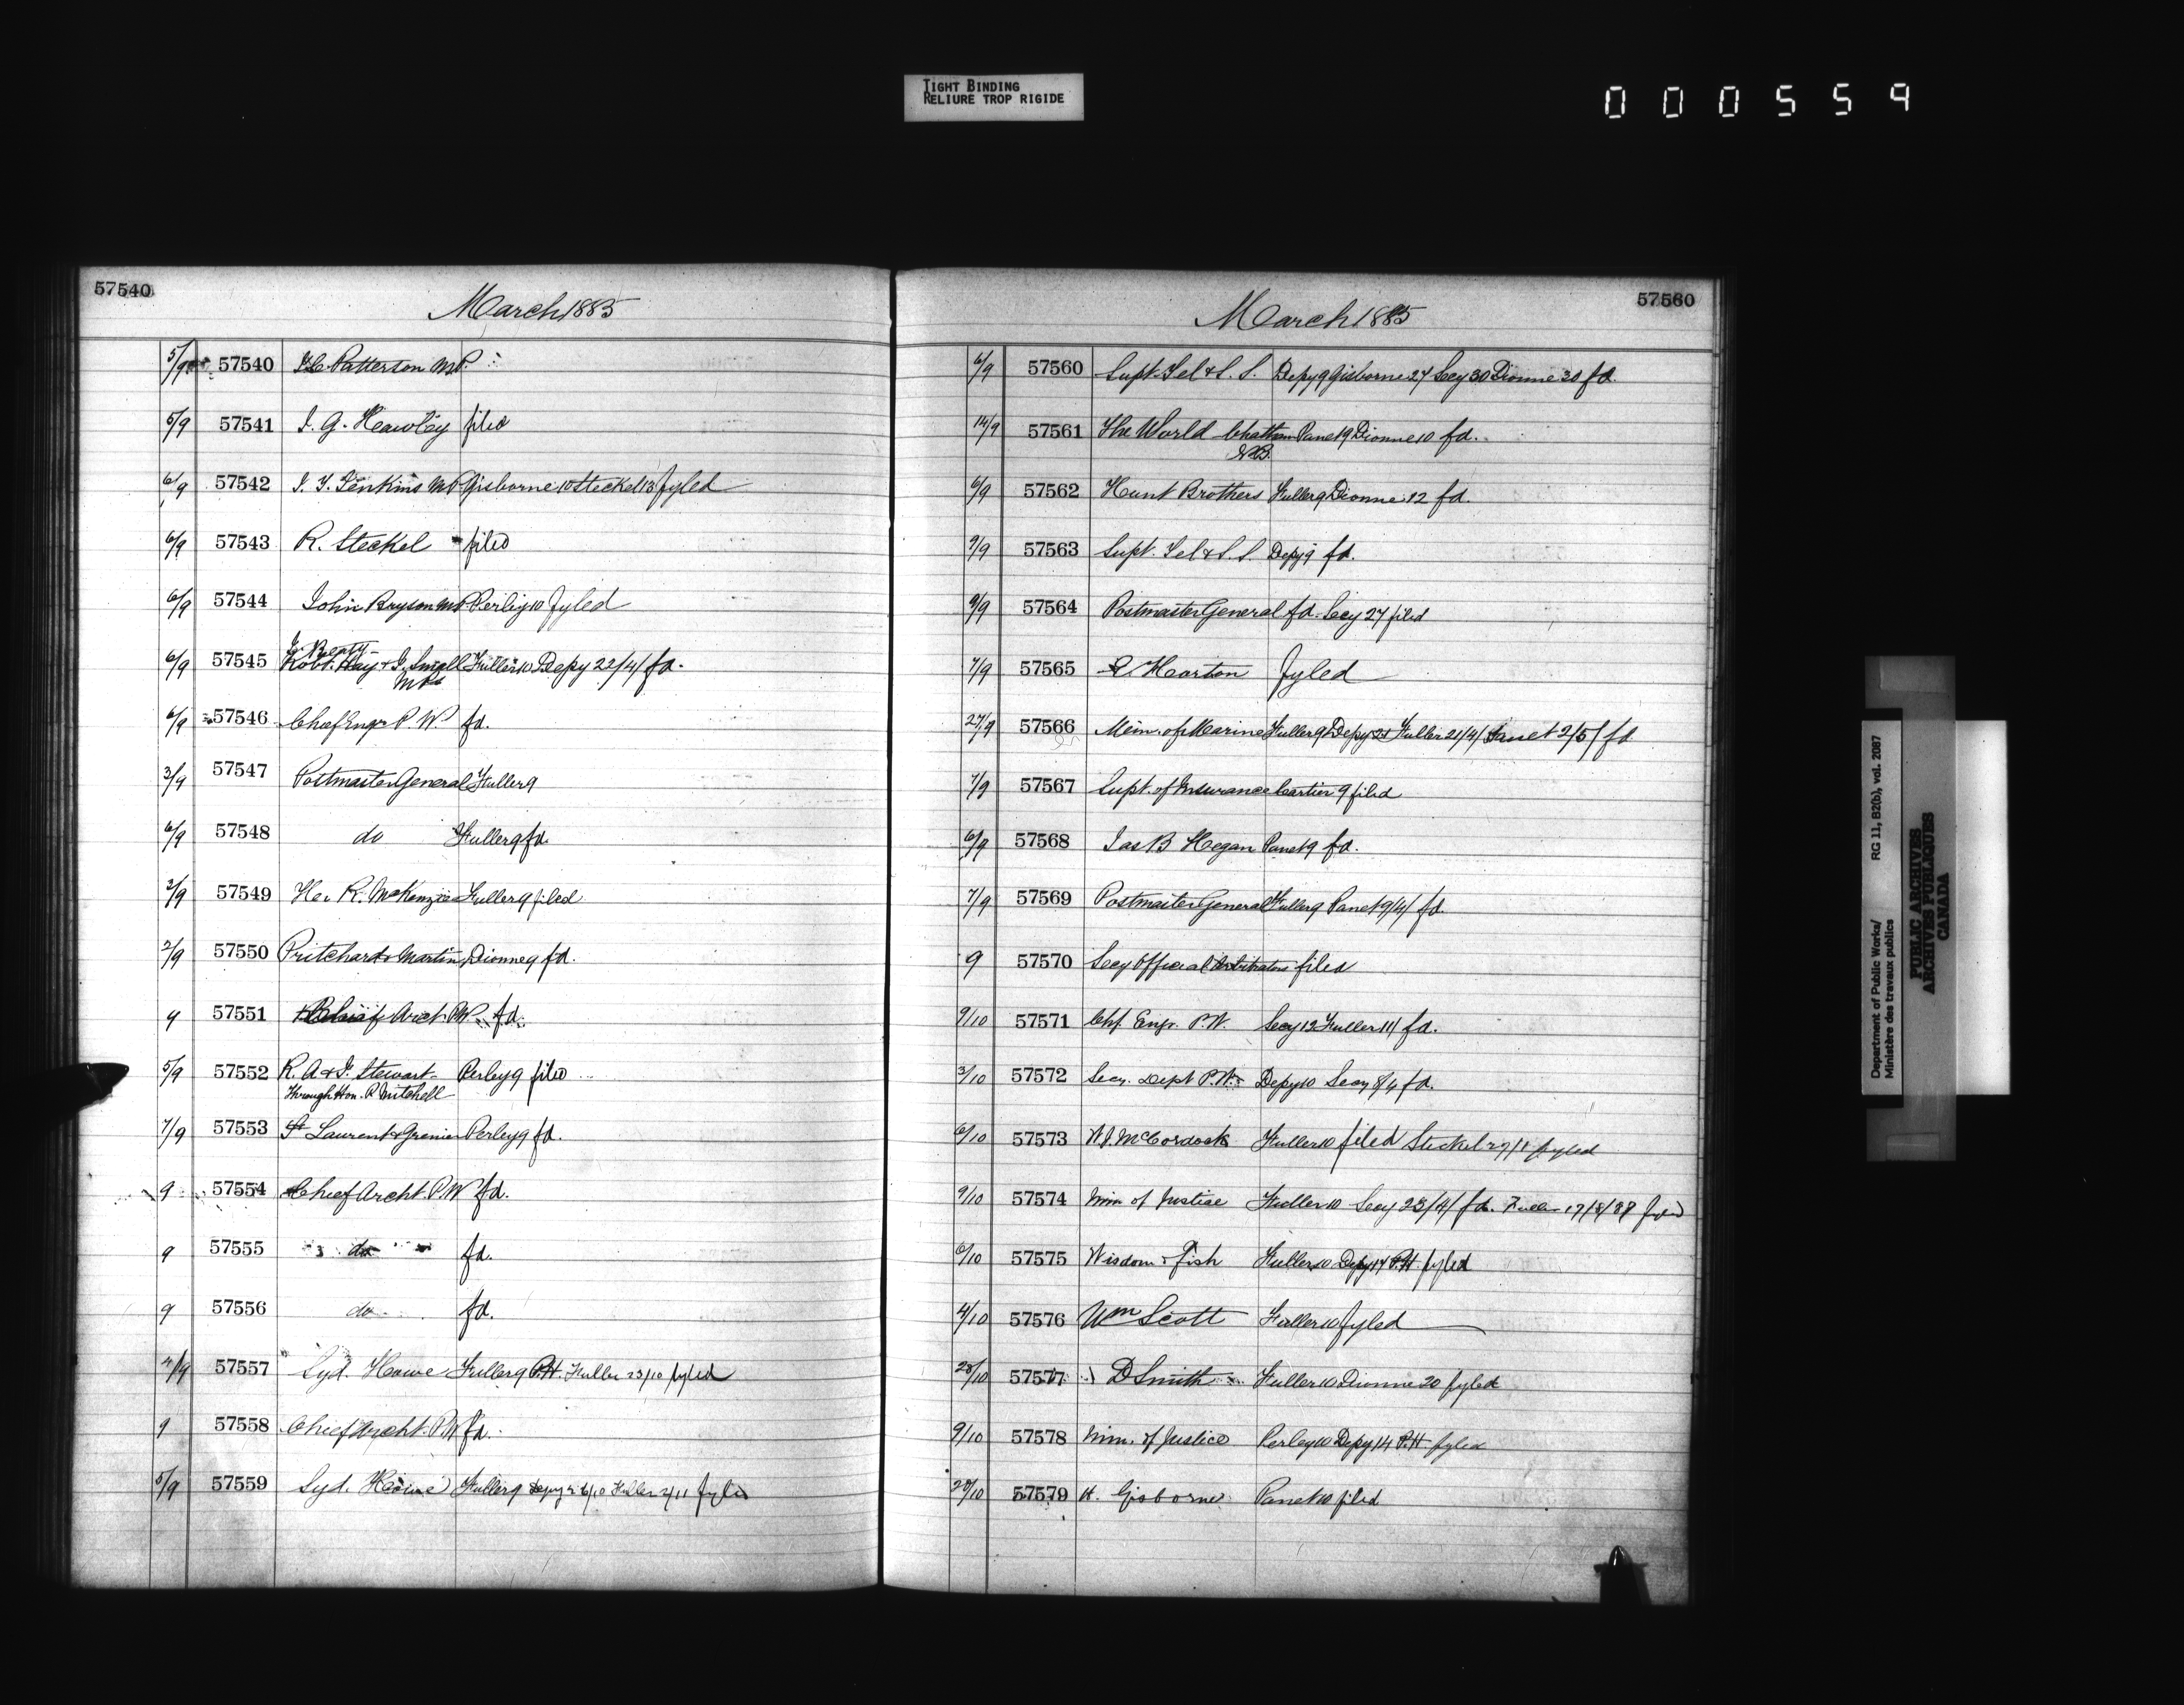 TIGHT BINDING
RELIURE TROP RIGIDE
000559
57540
March 1885
5/9 57540 J.C. Patterson M.P.
5/9 57541 J. G. Hawley filed
6/9 57542 J. T. Jenkins MP Gisborne 10 Steckel 13 fyled
6/9 57543 R. Steckel filed
6/9 57544 John Bryson MP Perley 10 fyled
J. Beaty
6/9 57545 Robt. Hay & J. Small Fuller 10 Depy 22/4/ fd.
MPs
6/9 57546 Chief Engr P. W. fd.
3/9 57547 Postmaster General Fuller 9
6/9 57548 do Fuller 9 fd.
2/9 57549 R. McKenzie Fuller 9 filed
2/9 57550 Pritchard & Martin Dionne 9 fd.
9 57551 Chief Arct. PW. fd.
5/9 57552 R. A & J. Stewart Perley 9 filed
Through Hon. P. Mitchell
7/9 57553 St Laurent & Grenier Perley 9 fd.
9 57554 Chief Archt. P.W fd.
9 57555 do fd.
9 57556 do fd.
4/9 57557 Syd. Howe Fuller 9 P.H. Fuller 23/10 fyled
9 57558 Chief Archt. P.W fd.
5/9 57559 Syd. Howe Fuller 9 Depy 6/10 Fuller 2/11 fyled
57560
March 1885
6/9 57560 Supt. Tel & S. S. Depy 9 Gisborne 27 Secy 30 Dionne 30 fd.
14/9 57561 The World Chatham Panet 9 Dionne 10 fd.
N.B.
6/9 57562 Hunt Brothers Fuller 9 Dionne 12 fd.
9/9 57563 Supt. Tel & S. S. Depy 9 fd.
9/9 57564 Postmaster General fd. Secy 27 filed
7/9 57565 Horton fyled
27/9 57566 Min. of Marine Fuller 9 Depy 21 Fuller 21/4/ Panet 2/5/ fd
7/9 57567 Supt. of Insurance Cartier 9 filed
6/9 57568 Jas B Hegan Panet 9 fd.
7/9 57569 Postmaster General Fuller 9 Panet 9/4/ fd.
9 57570 Secy Official Arbitrators filed
9/10 57571 Chf. Engr. P.W. Secy 12 Fuller 11/ fd.
3/10 57572 Secy. Dept P.W. Depy 10 Secy 8/4 fd.
6/10 57573 W. McCordock Fuller 10 filed Steckel 27/1 fyled
9/10 57574 Min of Justice Fuller 10 Secy 23/4/ fd. Fuller 17/8/88 fyled
6/10 57575 Wisdom & Fish Fuller 10 Depy 14 P.H. fyled
4/10 57576 Wm Scott Fuller 10 fyled
28/10 57577 D Smith Fuller 10 Dionne 20 fyled
9/10 57578 Min. of Justice Perley 10 Depy 14 P.H fyled
28/10 57579 H. Gisborne Panet 10 filed
Department of Public Works/ RG 11, B2(b), vol. 2087
Ministère des travaux publics
PUBLIC ARCHIVES
ARCHIVES PUBLIQUES
CANADA